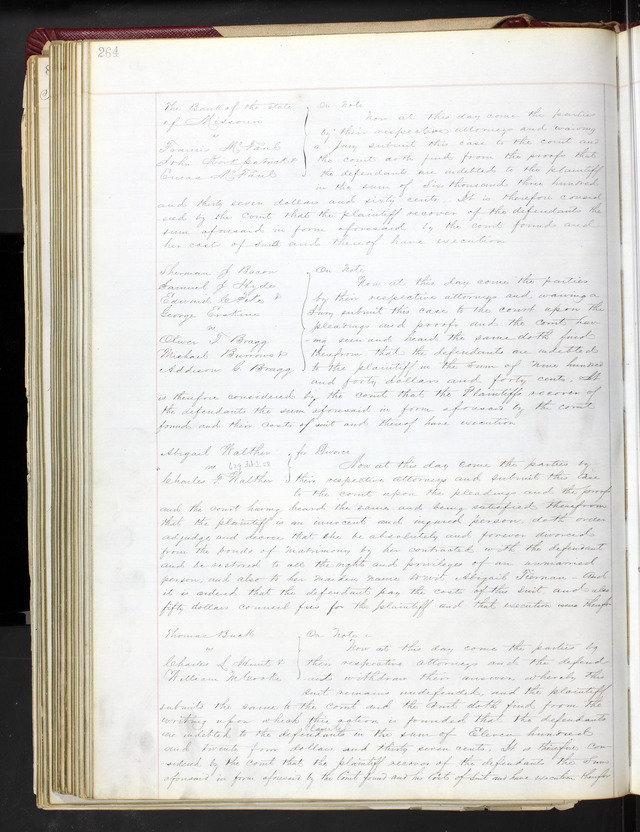 264
The Bank of the State On Note
of Missouri Now at this day come the parties
vs by their respective attorneys and waiving
Francis McFaul a Jury submit this case to the court and
John Kirkpatrick & the court doth find from the proofs that
Eneas McFaul the defendants are indebted to the plaintiff
in the sum of Six thousand three hundred
and thirty seven dollars and sixty cents. It is therefore consid
ered by the Court that the plaintiff recover of the defendants the
sum aforesaid in form aforesaid by the court found and
her costs of suit and thereof have execution
Sherman J Bacon On Note
Samuel J Hyde Now at this day come the parties
Edward & by their respective attorneys and waiving a
George Erskine Jury submit this case to the court upon the
vs pleadings and proofs and the Court hav
Oliver T Bragg ing seen and heard the same doth find
Michael Burrows & therefrom that the defendants are indebted
Addison C Bragg to the plaintiff in the sum of Nine hundred
and forty dollars and forty cents. It
is therefore considered by the Court that the Plaintiffs recover of
the defendants the sum aforesaid in form aforesaid by the court
found and their costs of suit and thereof have execution
Abigail Walther for Divorce
vs Now at this day come the parties by
Charles F Walther their respective attorneys and submit this case
to the court upon the pleadings and the proofs
and the court having heard the same and being satisfied therefrom
that the plaintiff is an innocent and injured person doth order
adjudge and decree that she be absolutely and forever divorced
from the bonds of Matrimony by her contracted with the defendant
and be restored to all the rights and privileges of an unmarried
person and also to her maiden name to wit, Abigail Tiernan. And
it is ordered that the defendant pay the costs of this suit and also
fifty dollars counsel fees for the plaintiff and that execution issue therefor
Thomas Buck On Note
vs Now at this day come the parties by
Charles L Hunt & their respective attorneys and the defend
William M Cooke ants withdraw their answer, whereby this
suit remains undefended, and the plaintiff
submits the same to the court and the Court doth find from the
writing upon which this action is founded that the defendants
are indebted to the defendants in the sum of Eleven hundred
and twenty four dollars and thirty seven cents. It is therefore con
sidered by the court that the plaintiff recover of the defendants the sum
aforesaid in form aforesaid by the Court found and his Costs of Suit and have execution therefor